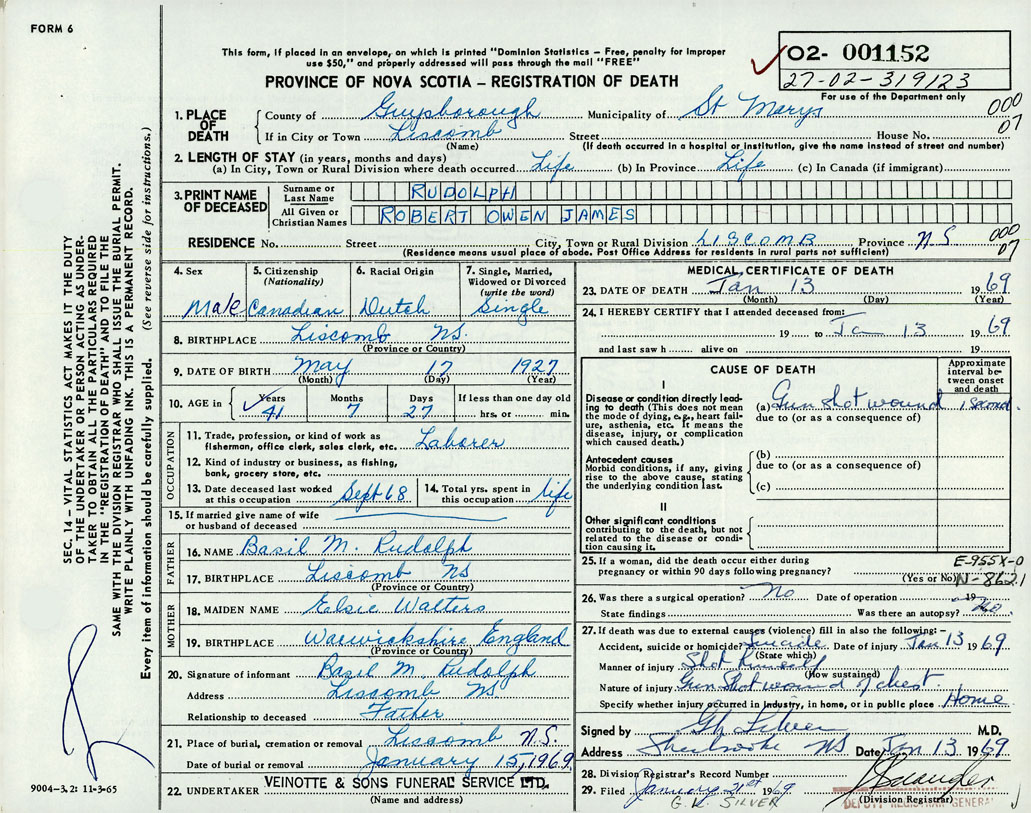 FORM 6
This form, if placed in an envelope, on which is printed "Dominion Statistics – Free, penalty for improper
use $50," and properly addressed will pass through the mail "FREE"
PROVINCE OF NOVA SCOTIA – REGISTRATION OF DEATH
02- 001152
27-02-319123
For use of the Department only
000
07
1. PLACE OF DEATH
County of Guysborough Municipality of St Marys
If in City or Town Liscomb Street House No.
(Name) (If death occurred in a hospital or institution, give the name instead of street and number)
2. LENGTH OF STAY (in years, months and days)
(a) In City, Town or Rural Division where death occurred Life (b) In Province Life (c) In Canada (if immigrant)
3. PRINT NAME OF DECEASED
Surname or Last Name RUDOLPH
All Given or Christian Names ROBERT OWEN JAMES
RESIDENCE No. Street City, Town or Rural Division LISCOMB Province N.S. 000
07
(Residence means usual place of abode. Post Office Address for residents in rural parts not sufficient)
4. Sex
Male
5. Citizenship
(Nationality)
Canadian
6. Racial Origin
Dutch
7. Single, Married,
Widowed or Divorced
(write the word)
Single
8. BIRTHPLACE Liscomb NS.
(Province or Country)
9. DATE OF BIRTH May 17 1927
(Month) (Day) (Year)
10. AGE in
Years Months Days If less than one day old
41 7 27 hrs. or min.
OCCUPATION
11. Trade, profession, or kind of work as
fisherman, office clerk, sales clerk, etc. Laborer
12. Kind of industry or business, as fishing,
bank, grocery store, etc.
13. Date deceased last worked
at this occupation Sept 68
14. Total yrs. spent in
this occupation life
15. If married give name of wife
or husband of deceased
FATHER
16. NAME Basil M. Rudolph
17. BIRTHPLACE Liscomb NS
(Province or Country)
MOTHER
18. MAIDEN NAME Elsie Walters
19. BIRTHPLACE Warwickshire England
(Province or Country)
20. Signature of informant Basil M Rudolph
Address Liscomb NS
Relationship to deceased Father
21. Place of burial, cremation or removal Liscomb N.S.
Date of burial or removal January 15, 1969
22. UNDERTAKER VEINOTTE & SONS FUNERAL SERVICE LTD.
(Name and address)
MEDICAL CERTIFICATE OF DEATH
23. DATE OF DEATH Jan 13 1969
(Month) (Day) (Year)
24. I HEREBY CERTIFY that I attended deceased from:
19 to Jan 13 1969
and last saw h alive on 19
CAUSE OF DEATH
Approximate
interval be-
tween onset
and death
I
Disease or condition directly lead-
ing to death (This does not mean
the mode of dying, e.g., heart fail-
ure, asthenia, etc. It means the
disease, injury, or complication
which caused death.)
(a) Gun shot wound 1 second.
due to (or as a consequence of)
Antecedent causes
Morbid conditions, if any, giving
rise to the above cause, stating
the underlying condition last.
(b)
due to (or as a consequence of)
(c)
II
Other significant conditions
contributing to the death, but not
related to the disease or condi-
tion causing it.
25. If a woman, did the death occur either during
pregnancy or within 90 days following pregnancy?
(Yes or No)
E-955X-0
N-862.1
26. Was there a surgical operation? No Date of operation 19
State findings Was there an autopsy? no
27. If death was due to external causes (violence) fill in also the following:–
Accident, suicide or homicide? Suicide Date of injury Jan 13 1969
(State which)
Manner of injury Shot himself
(How sustained)
Nature of injury Gun shot wound of chest
Specify whether injury occurred in industry, in home, or in public place Home
Signed by M.D.
Address Sherbrooke NS Date Jan 13 1969
28. Division Registrar's Record Number
29. Filed January 21st 1969
G. K. SILVER
(Division Registrar)
DEPUTY REGISTRAR GENERAL
SEC. 14 – VITAL STATISTICS ACT MAKES IT THE DUTY
OF THE UNDERTAKER OR PERSON ACTING AS UNDER-
TAKER TO OBTAIN ALL THE PARTICULARS REQUIRED
IN THE "REGISTRATION OF DEATH" AND TO FILE THE
SAME WITH THE DIVISION REGISTRAR WHO SHALL ISSUE THE BURIAL PERMIT.
WRITE PLAINLY WITH UNFADING INK. THIS IS A PERMANENT RECORD.
Every item of information should be carefully supplied. (See reverse side for instructions.)
9004-3.2: 11-3-65